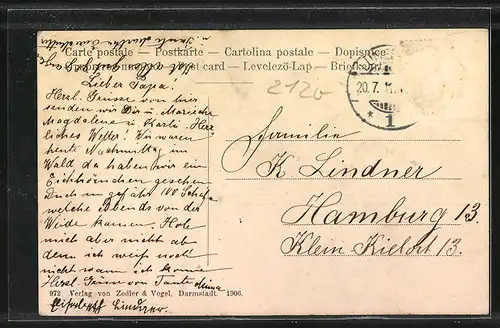 Carte postale — Postkarte — Cartolina postale — Dopisnice
card — Levelező-Lap —
2120
20.7.
1
Lieber Papa!
Herzl. Grüsse von hier
senden wir Dir u. Mariechen
Magdalene u. Karli. Herr
liches Wetter! Wir waren
heute Nachmittag im
Wald da haben wir ein
Eichhörnchen gesehen
Und ungefähr 100 Schafe
welche Abends von der
Weide kamen. Hole
mich aber nicht ab
denn ich weiß noch
nicht wann ich komme
Herzl. Grüsse von Tante
Familie
K Lindner
Hamburg 13.
Klein Kielort 13.
972 Verlag von Zedler & Vogel, Darmstadt. 1906.
Elisabeth Lindner.